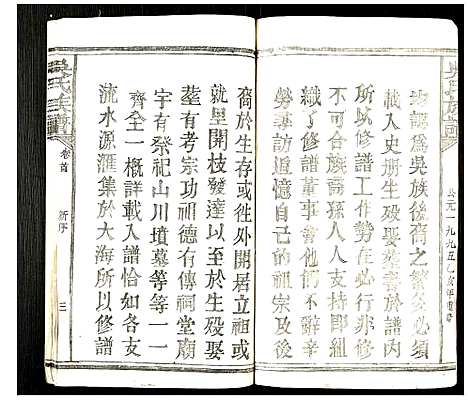 吳氏族譜
公元一九九五乙亥年
為吳族後裔之必須
載入史冊生殁娶葬於譜內
所以修譜工作勢在必行非
不可合族商孫人人支持即組
織了修譜董事會他們不辭辛
勞尋訪追憶自己的祖宗及後
裔於生存或往外開居立祖或
就里開枝發達以至於生殁娶
塟有考宗功祖德有傳祠堂廟
宇有祭祀山川墳墓等等一一
齊全一概詳載入譜恰如各支
流水源滙集於大海所以修譜
吳氏族譜
卷首
新序
三